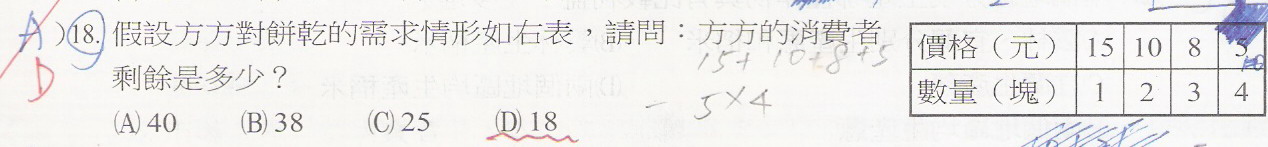 A )18. 假設方方對餅乾的需求情形如右表，請問：方方的消費者
剩餘是多少？
D
15+ 10+8+5
- 5×4
(A) 40 (B) 38 (C) 25 (D) 18
價格（元） 15 10 8 5
數量（塊） 1 2 3 4